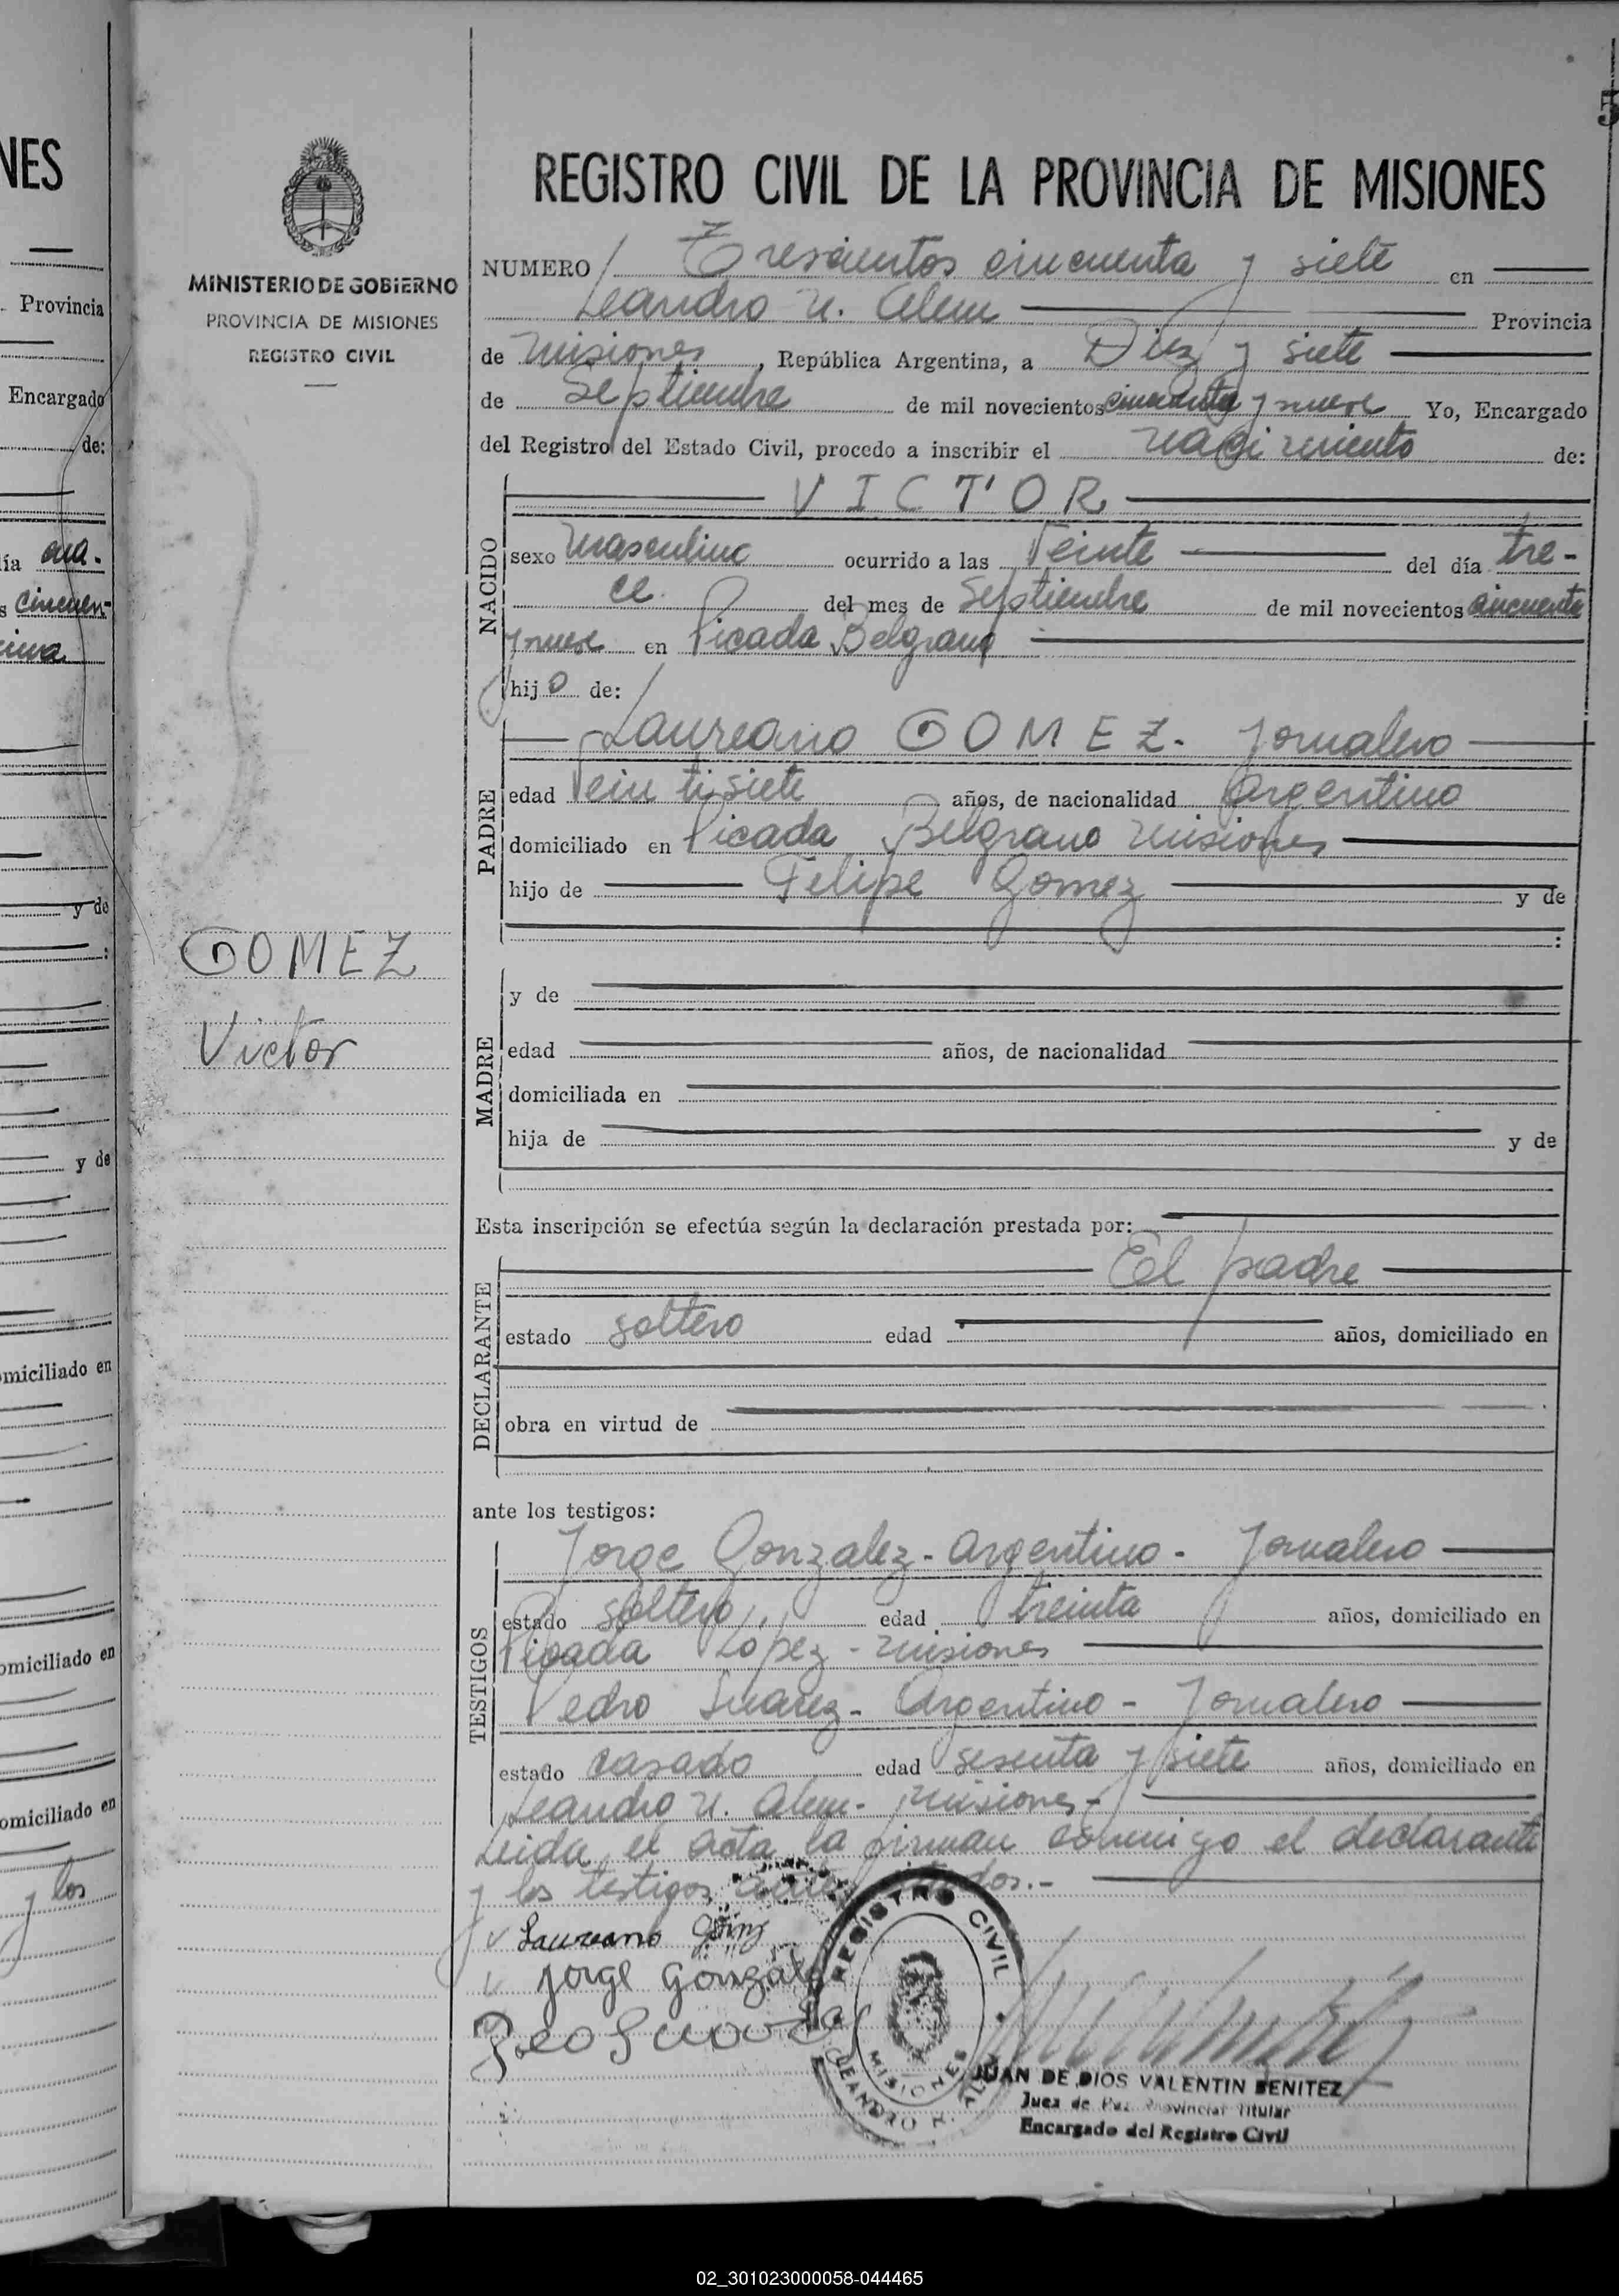 NES
Provincia
Encargado
de:
ía cua-
s cincuen-
y de
:
y de
omiciliado en
omiciliado en
omiciliado en
y los
5
MINISTERIO DE GOBIERNO
PROVINCIA DE MISIONES
REGISTRO CIVIL
GOMEZ
Victor
REGISTRO CIVIL DE LA PROVINCIA DE MISIONES
NUMERO Trescientos cincuenta y siete en
Leandro N. Alem Provincia
de Misiones, República Argentina, a Diez y siete
de Septiembre de mil novecientos cincuenta y nueve Yo, Encargado
del Registro del Estado Civil, procedo a inscribir el nacimiento de:
NACIDO
VICTOR
sexo Masculino ocurrido a las Veinte del día tre-
ce del mes de Septiembre de mil novecientos cincuenta
y nueve en Picada Belgrano
hijo de:
PADRE
Laureano GOMEZ. Jornalero
edad Veintisiete años, de nacionalidad Argentino
domiciliado en Picada Belgrano Misiones
hijo de Felipe Gomez y de
:
MADRE
y de
edad años, de nacionalidad
domiciliada en
hija de y de
Esta inscripción se efectúa según la declaración prestada por:
DECLARANTE
El padre
estado soltero edad años, domiciliado en
obra en virtud de
ante los testigos:
TESTIGOS
Jorge Gonzalez - Argentino - Jornalero
estado soltero edad treinta años, domiciliado en
Picada Lopez - Misiones
Pedro Suarez - Argentino - Jornalero
estado casado edad sesenta y siete años, domiciliado en
Leandro N. Alem - Misiones -
Leida el acta la firman conmigo el declarante
y los testigos antes citados.-
Laureano Gomez
Jorge Gonzalez
REGISTRO CIVIL
MISIONES
LEANDRO N. ALEM
JUAN DE DIOS VALENTIN BENITEZ
Juez de Paz Provincial Titular
Encargado del Registro Civil
02_301023000058-044465